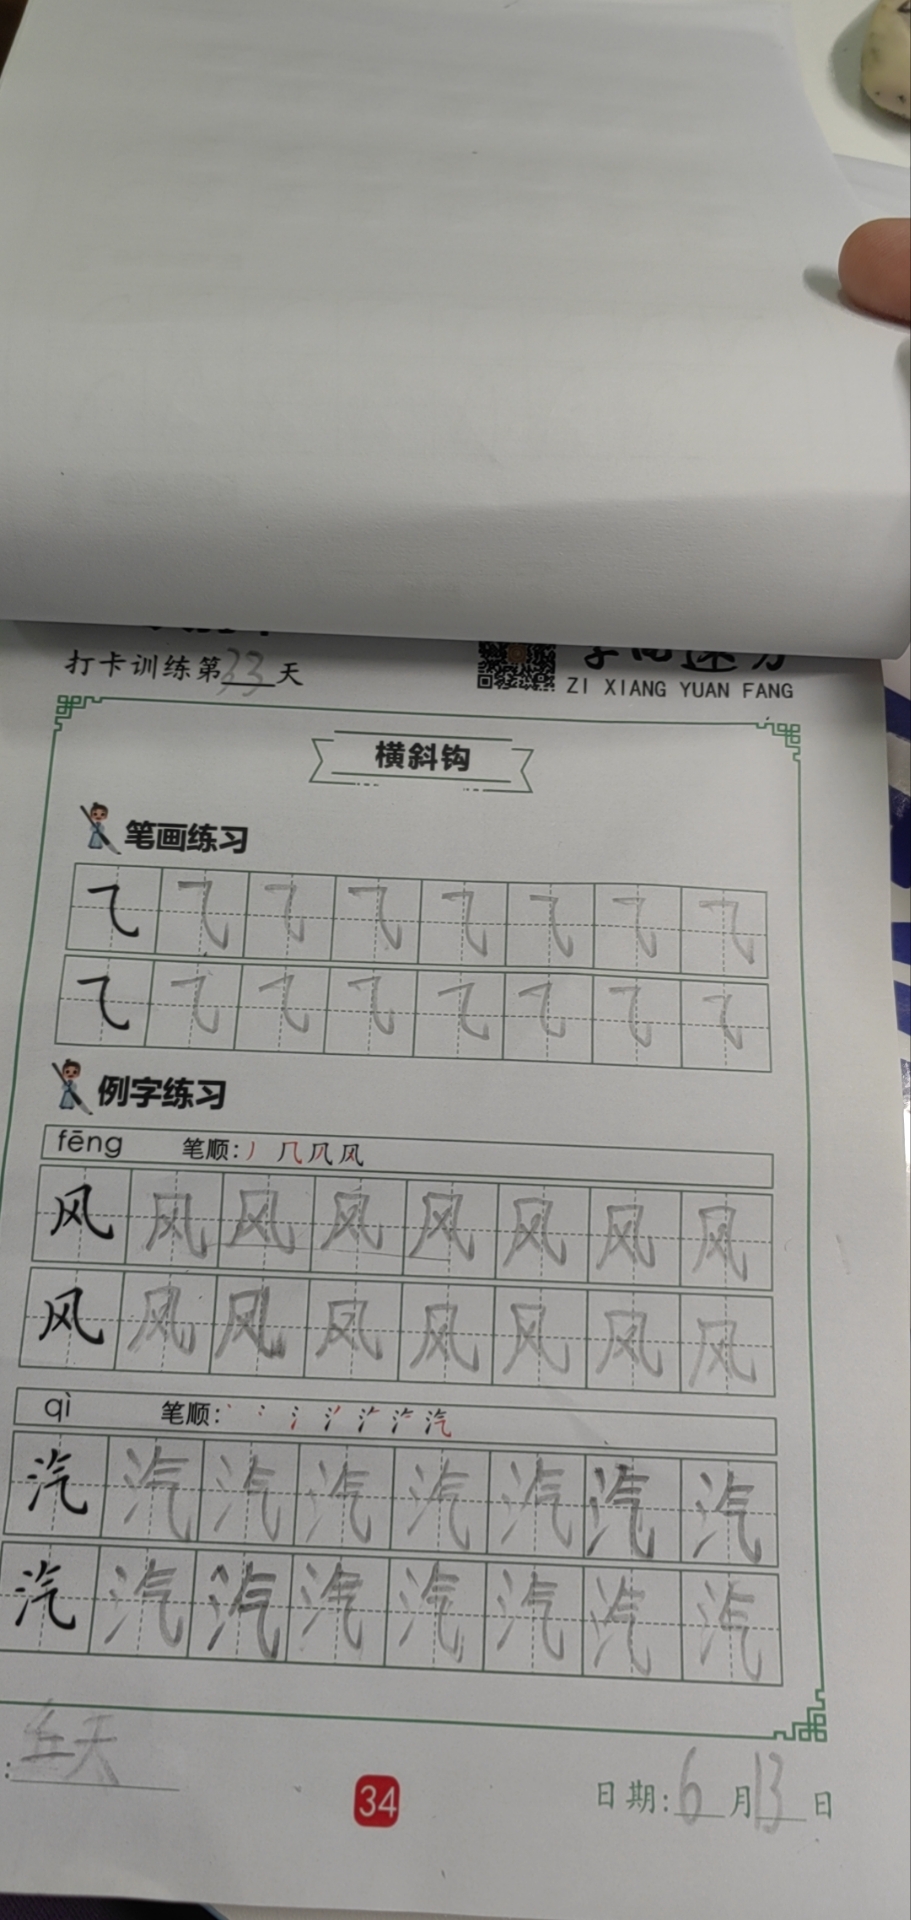 打卡训练第33天
ZI XIANG YUAN FANG
横斜钩
笔画练习
㇈ ㇈ ㇈ ㇈ ㇈ ㇈ ㇈ ㇈
㇈ ㇈ ㇈ ㇈ ㇈ ㇈ ㇈ ㇈
例字练习
fēng 笔顺:
风 风 风 风 风 风 风 风
风 风 风 风 风 风 风 风
qì 笔顺:
汽 汽 汽 汽 汽 汽 汽 汽
汽 汽 汽 汽 汽 汽 汽 汽
34
日期:6月13日